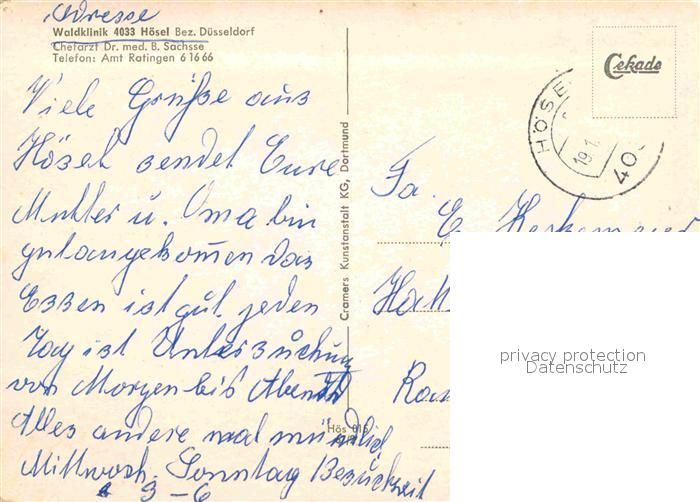 Adresse
Waldklinik 4033 Hösel Bez. Düsseldorf
Chefarzt Dr. med. B. Sachsse
Telefon: Amt Ratingen 6 16 66
Viele Grüße aus
Hösel sendet Eure
Mutter u. Oma bin
gut angekomen das
Essen ist gut jeden
Tag ist Untersuchung
von Morgen bis Abend
Alles andere mal mündlich
Mittwoch. Sonntag Besuchzeit
3-6
Hös 015
Cramers Kunstanstalt KG, Dortmund
Cekade
HÖSE
19.1
40
Fa.
E.
privacy protection
Datenschutz